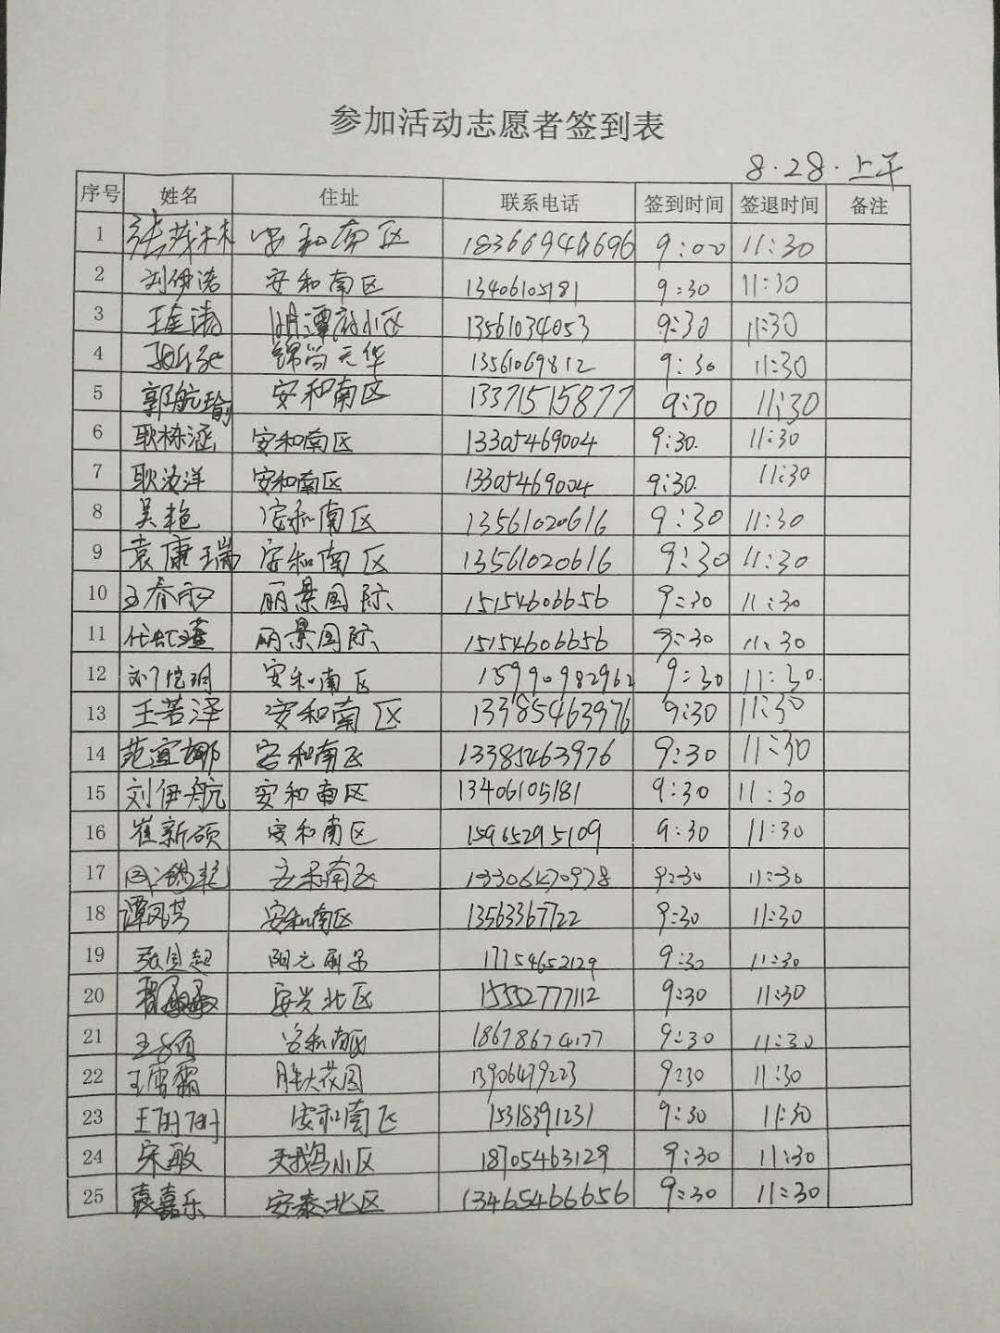 参加活动志愿者签到表
8.28.上午
序号 姓名 住址 联系电话 签到时间 签退时间 备注
1 张茂林 安和南区 18366940696 9:00 11:30
2 刘伊浩 安和南区 13406105181 9:30 11:30
3 府小区 13561034053 9:30 11:30
4 锦尚天华 13561069812 9:30 11:30
5 郭航瑜 安和南区 13371515877 9:30 11:30
6 耿栋涵 安和南区 13305469004 9:30. 11:30
7 耿汝洋 安和南区 13305469004 9:30. 11:30
8 吴艳 安和南区 13561020616 9:30 11:30
9 袁康瑞 安和南区 13561020616 9:30 11:30
10 王春雨 丽景国际 15154606656 9:30 11:30
11 丽景国际 15154606656 9:30 11:30
12 安和南区 15990982962 9:30 11:30.
13 王若泽 安和南区 13385463976 9:30 11:30
14 范宜娜 安和南区 13385463976 9:30 11:30
15 刘伊航 安和南区 13406105181 9:30 11:30
16 崔新硕 安和南区 15965295109 9:30 11:30
17 安和南区 13306470978 9:30 11:30
18 谭凤芳 安和南区 13563367722 9:30 11:30
19 17754652129 9:30 11:30
20 安兴北区 15552777112 9:30 11:30
21 安和南区 18678674177 9:30 11:30
22 王雪霜 胜大花园 13906479223 9:30 11:30
23 安和南区 15318391231 9:30 11:30
24 宋敏 天鹅小区 18705463129 9:30 11:30
25 袁嘉乐 安泰北区 13465466656 9:30 11:30